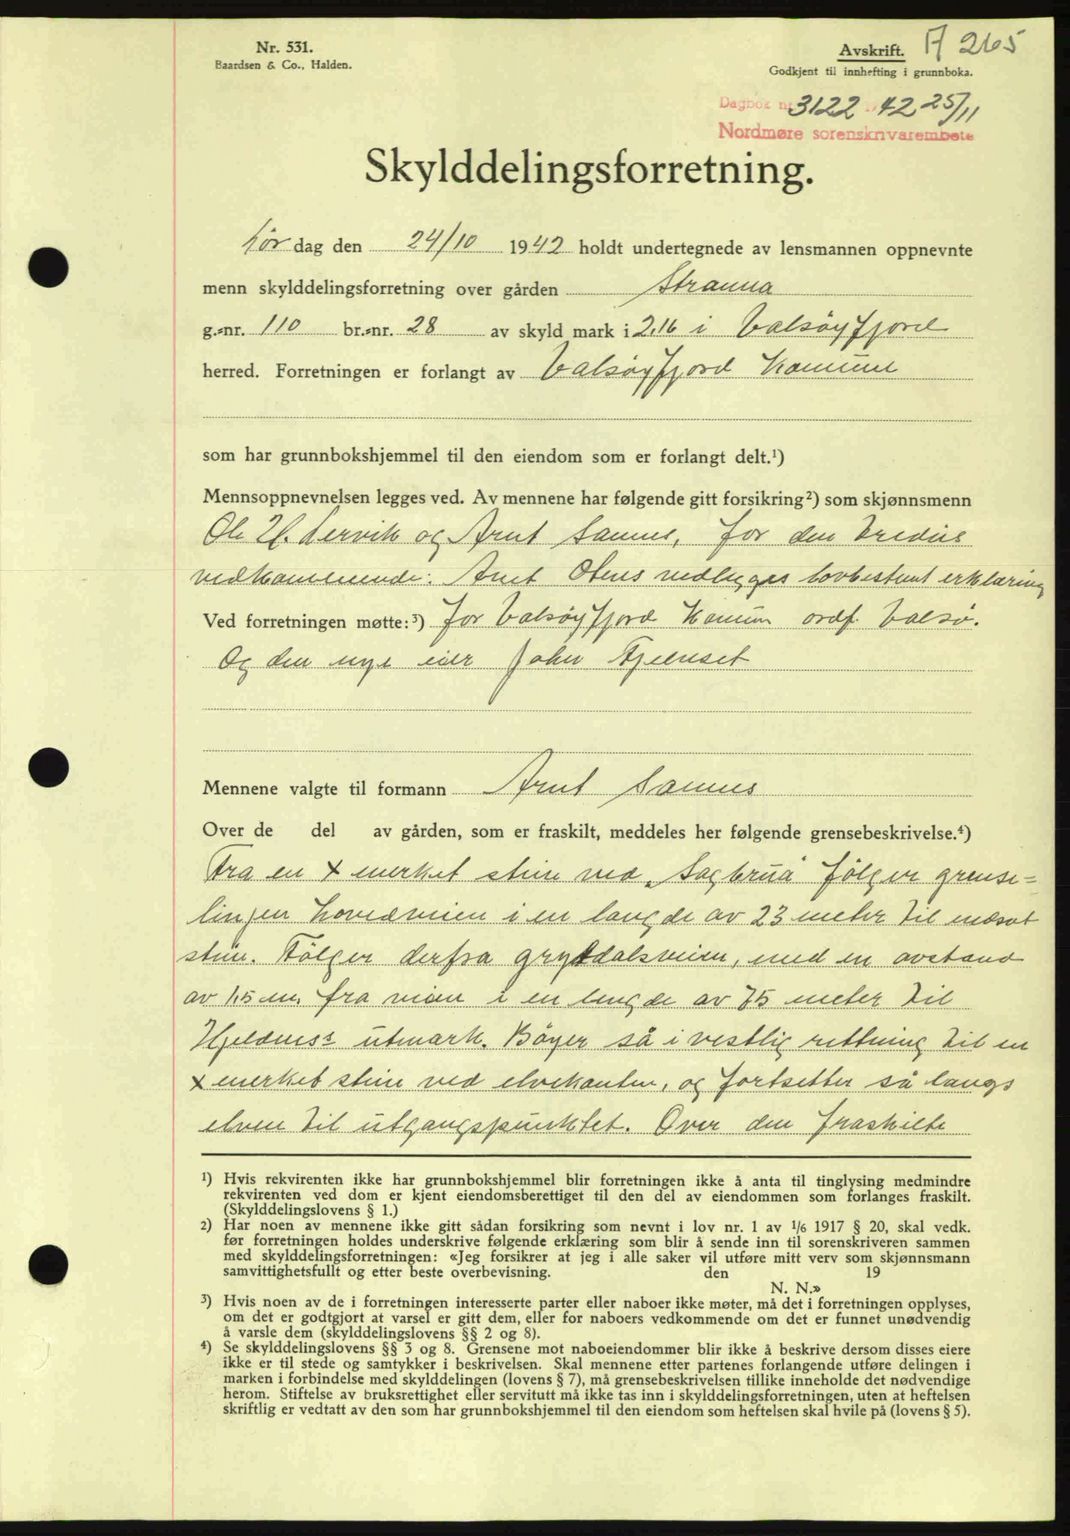 Nr. 531.
Baardsen & Co., Halden.
Avskrift. A 265
Godkjent til innhefting i grunnboka.
Dagbok nr. 3122 1942 25/11
Nordmøre sorenskrivarembete
Skylddelingsforretning.
Lør dag den 24/10 1942 holdt undertegnede av lensmannen oppnevnte
menn skylddelingsforretning over gården Stranna
g.-nr. 110 br.-nr. 28 av skyld mark i 2,16 i Valsøyfjord
herred. Forretningen er forlangt av Valsøyfjord Komune
som har grunnbokshjemmel til den eiendom som er forlangt delt.¹)
Mennsoppnevnelsen legges ved. Av mennene har følgende gitt forsikring²) som skjønnsmenn
Ole H. Lervik og Arnt Sannes, for den tredies
vedkommende: Arnt Otnes vedlegges lovbestemt erklæring
Ved forretningen møtte:³) for Valsøyfjord Komun ordf. Valsø.
Og den nye eier John
Mennene valgte til formann Arnt Sannes
Over de del av gården, som er fraskilt, meddeles her følgende grensebeskrivelse.⁴)
Fra en x merket stein ved „Sagbrua" følger grense=
linjen hovedveien i en langde av 23 meter til nedsat
stein. Følger derfra gryddalsveien, med en avstand
av 1,5 m. fra veien i en lengde av 75 meter til
utmark. Bøyer så i vestlig rettning til en
x merket stein ved elvekanten, og fortsetter så langs
elven til utgangspunktet. Over den fraskilte
¹) Hvis rekvirenten ikke har grunnbokshjemmel blir forretningen ikke å anta til tinglysing medmindre
rekvirenten ved dom er kjent eiendomsberettiget til den del av eiendommen som forlanges fraskilt.
(Skylddelingslovens § 1.)
²) Har noen av mennene ikke gitt sådan forsikring som nevnt i lov nr. 1 av 1/6 1917 § 20, skal vedk.
før forretningen holdes underskrive følgende erklæring som blir å sende inn til sorenskriveren sammen
med skylddelingsforretningen: «Jeg forsikrer at jeg i alle saker vil utføre mitt verv som skjønnsmann
samvittighetsfullt og etter beste overbevisning. den 19
N. N.»
³) Hvis noen av de i forretningen interesserte parter eller naboer ikke møter, må det i forretningen opplyses,
om det er godtgjort at varsel er gitt dem, eller for naboers vedkommende om det er funnet unødvendig
å varsle dem (skylddelingslovens §§ 2 og 8).
⁴) Se skylddelingslovens §§ 3 og 8. Grensene mot naboeiendommer blir ikke å beskrive dersom disses eiere
ikke er til stede og samtykker i beskrivelsen. Skal mennene etter partenes forlangende utføre delingen i
marken i forbindelse med skylddelingen (lovens § 7), må grensebeskrivelsen tillike inneholde det nødvendige
herom. Stiftelse av bruksrettighet eller servitutt må ikke tas inn i skylddelingsforretningen, uten at heftelsen
skriftlig er vedtatt av den som har grunnbokshjemmel til den eiendom som heftelsen skal hvile på (lovens § 5).